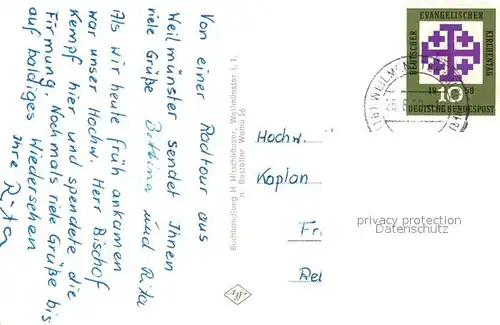 Von einer Radtour aus
Weilmünster sendet Ihnen
viele Grüße Bettina und Rita
Als wir heute früh ankamen
war unser Hochw. Herr Bischof
Kempf hier und spendete die
Firmung. Nochmals viele Grüße bis
auf baldiges Wiedersehen
Ihre Rita
Buchhandlung H. Hirschhäuser, Weilmünster i. T.
n Bestellnr Weimü 56
Agfa
DEUTSCHER EVANGELISCHER KIRCHENTAG
19 59
10
DEUTSCHE BUNDESPOST
Hochw.
Kaplan
Fr
Rel
privacy protection
Datenschutz